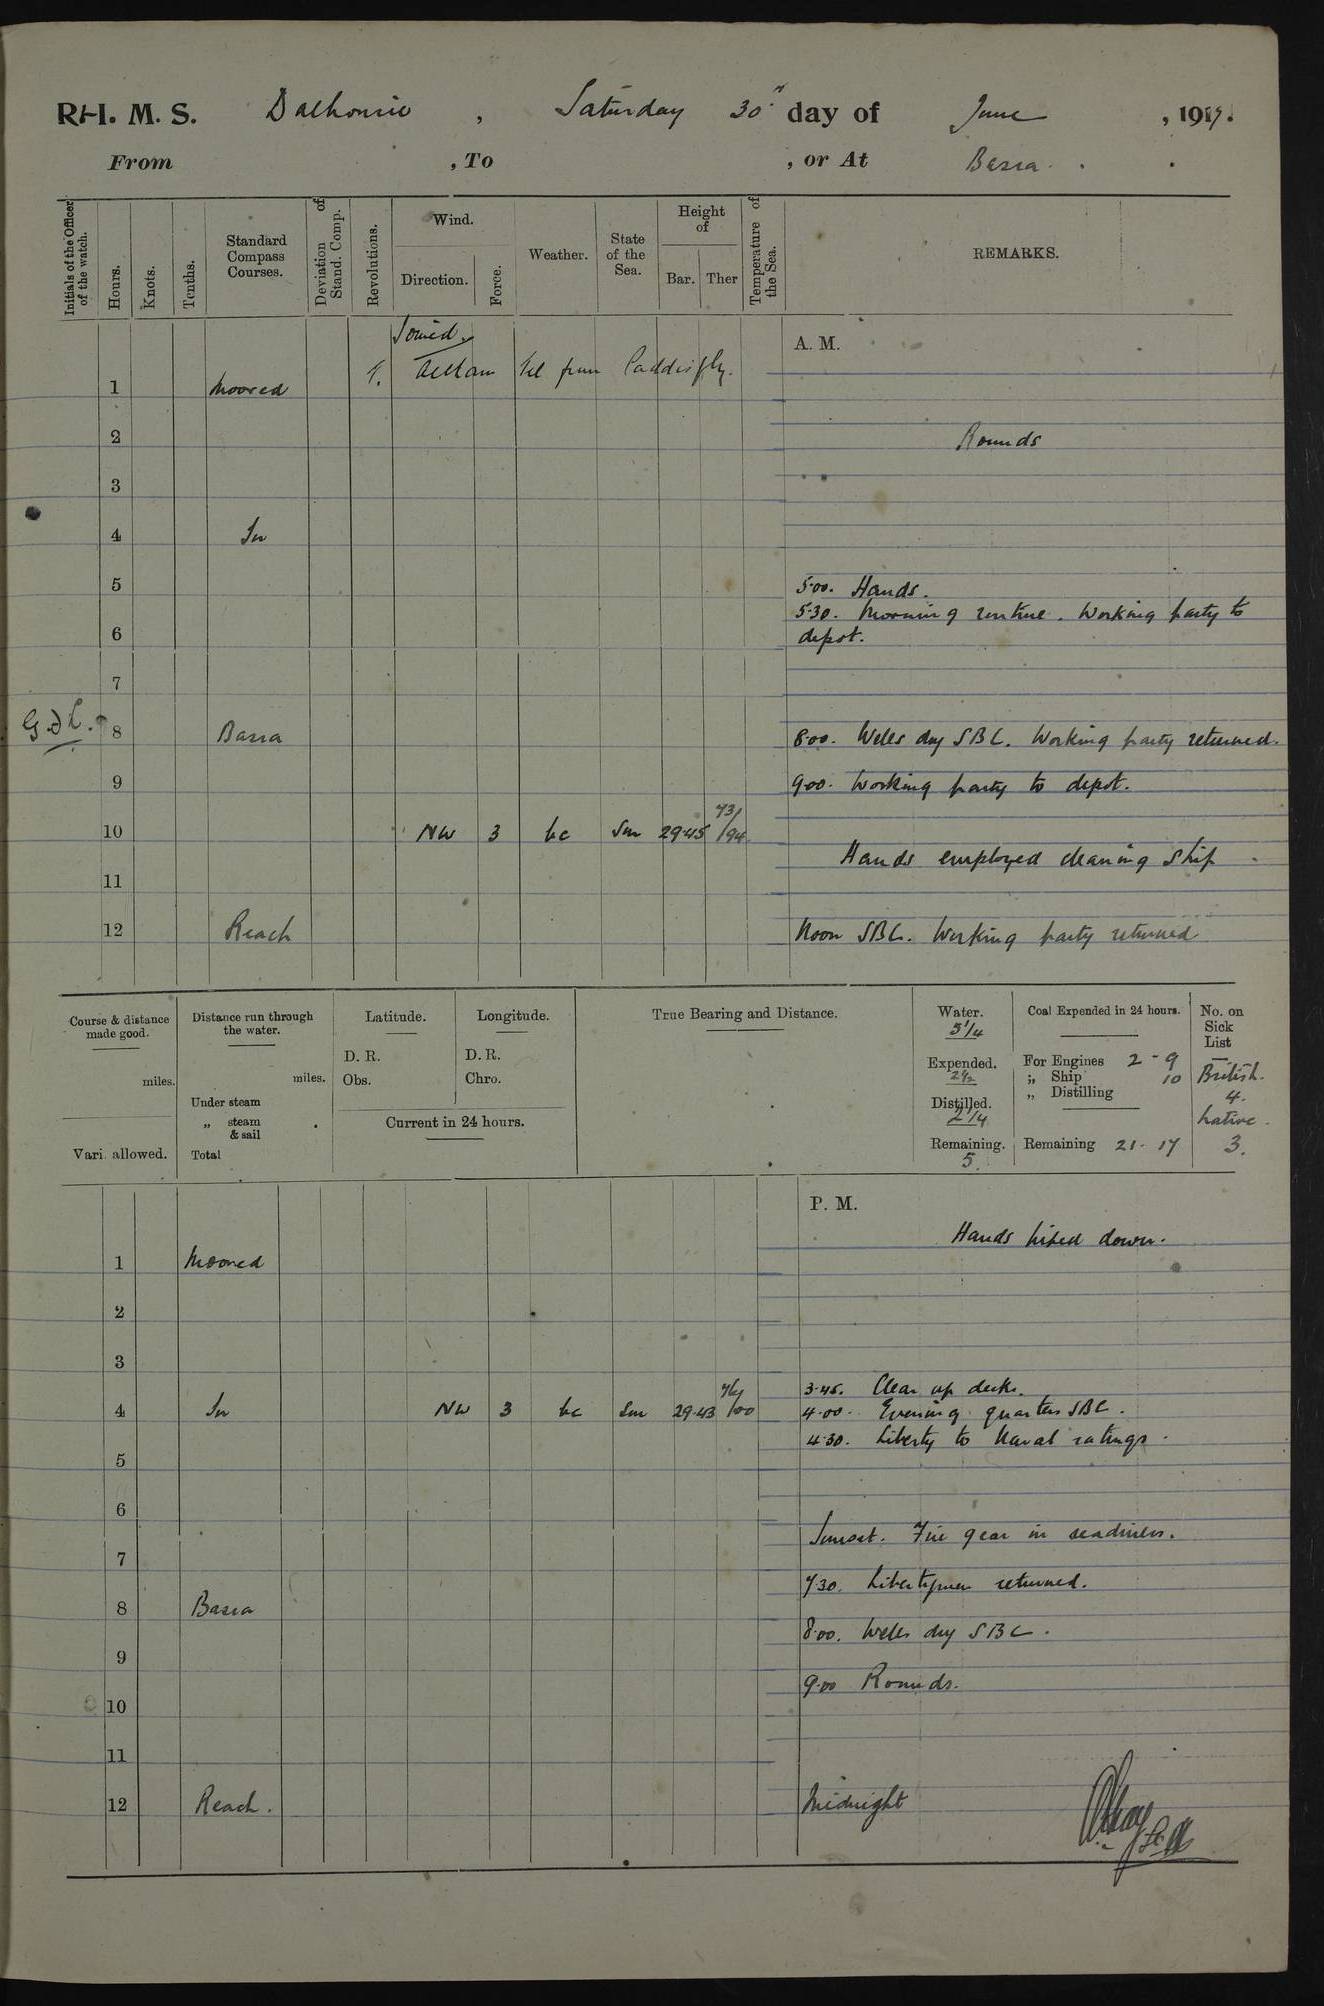 R.I. M. S. Dalhousie, Saturday 30th day of June, 1917.
From , To , or At Basra.
Initials of the Officer of the watch.
Hours.
Knots.
Tenths.
Standard Compass Courses.
Deviation of Stand. Comp.
Revolutions.
Wind.
Direction.
Force.
Weather.
State of the Sea.
Height of
Bar.
Ther
Temperature of the Sea.
REMARKS.
Joined.
A. M.
from Caddisfly.
1 Moored
2 Rounds
3
4 In
5 5.00. Hands.
5.30. Morning routine. Working party to
6 depot.
7
8 Basra 8.00. Wells dry SBC. Working party returned.
9 9.00. Working party to depot.
10 NW 3 bc Sm 29.45 73/94
Hands employed cleaning ship
11
12 Reach Noon SBC. Working party returned
Course & distance made good.
miles.
Vari. allowed.
Distance run through the water.
miles.
Under steam
„ steam & sail
Total
Latitude.
D. R.
Obs.
Longitude.
D. R.
Chro.
Current in 24 hours.
True Bearing and Distance.
Water.
5¼
Expended.
2½
Distilled.
2¼
Remaining.
5.
Coal Expended in 24 hours.
For Engines 2 - 9
„ Ship 10
„ Distilling
Remaining 21 - 17
No. on Sick List
British.
4.
Native.
3.
P. M.
Hands piped down.
1 Moored
2
3
3.45. Clear up decks.
4 In NW 3 bc Sm 29.43 76/100 4.00. Evening quarters SBC.
4.30. Liberty to Naval ratings.
5
6
Sunset. Fire gear in readiness.
7
7.30. Libertymen returned.
8 Basra
8.00. Wells dry SBC.
9
9.00 Rounds.
10
11
12 Reach. Midnight